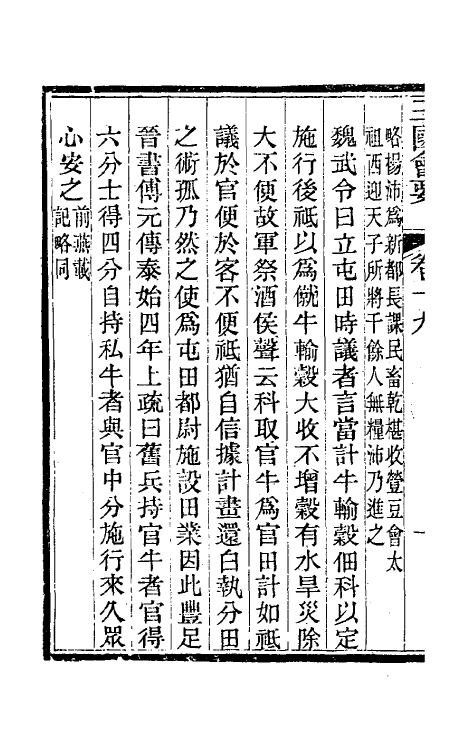 三國會要 卷十九 一
略楊沛爲新都長課民畜乾椹收䝁豆會太
祖西迎天子所將千餘人無糧沛乃進之
魏武令曰立屯田時議者言當計牛輸穀佃科以定
施行後祇以爲僦牛輸穀大收不增穀有水旱災除
大不便故軍祭酒侯聲云科取官牛爲官田計如祇
議於官便於客不便祇猶自信據計畫還白執分田
之術孤乃然之使爲屯田都尉施設田業因此豐足
晉書傅元傳泰始四年上疏曰舊兵持官牛者官得
六分士得四分自持私牛者與官中分施行來久眾
心安之前燕載
記略同